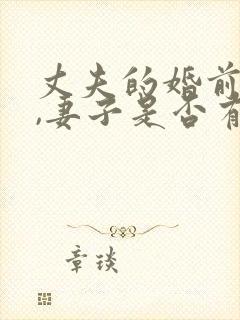 丈夫的婚前
,妻子是否有
章琰